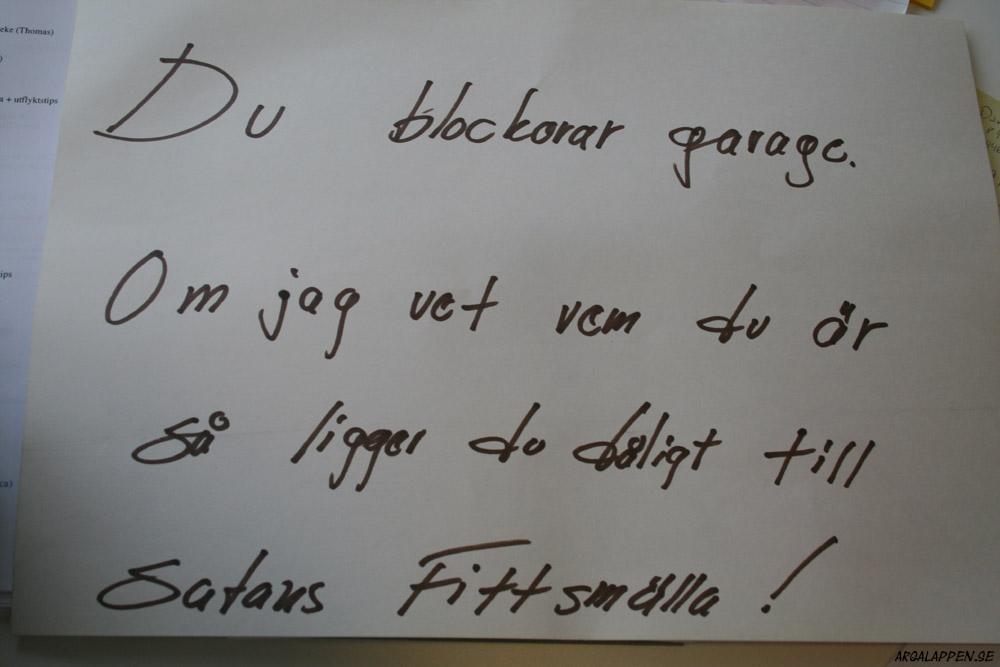 eke (Thomas)
a + utflyktstips
ips
ca)
Du blockorar garage.
Om jag vet vem du är
så ligger du dåligt till
Satans Fittsmälla!
ARGALAPPEN.SE